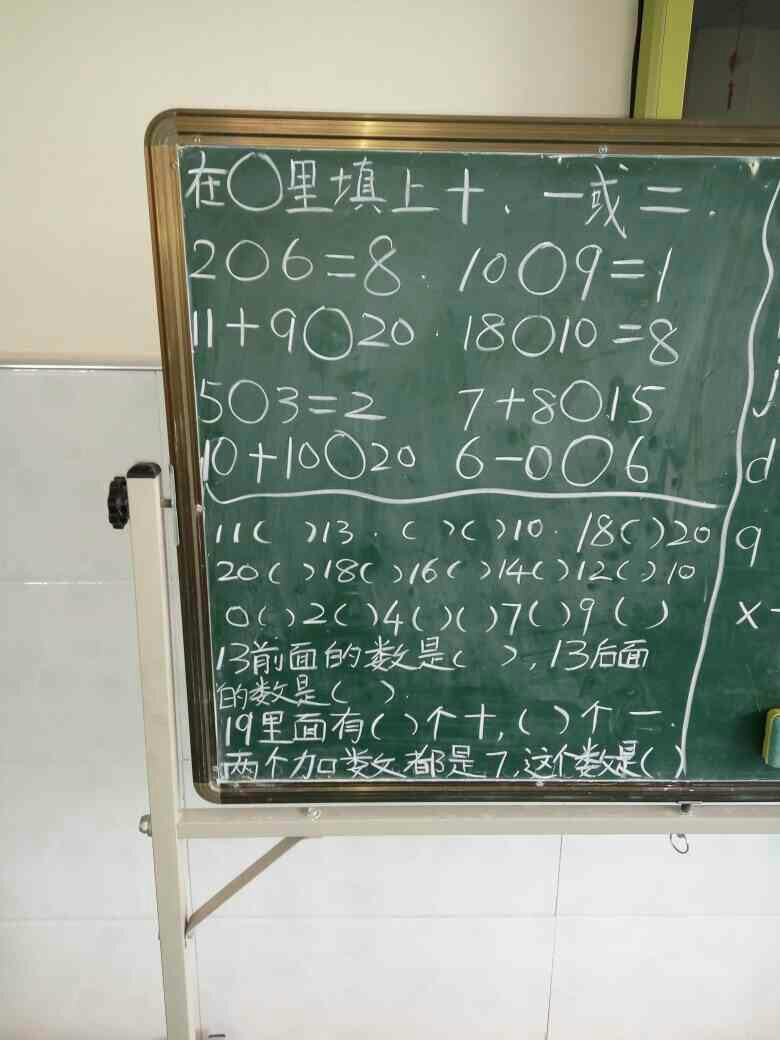 在○里填上十、一或二.
2○6=8. 10○9=1
11+9○20. 18○10=8
5○3=2 7+8○15
10+10○20 6-0○6
11( )13. ( )( )10. 18( )20
20( )18( )16( )14( )12( )10
0( )2( )4( )( )7( )9( )
13前面的数是( ), 13后面
的数是( ).
19里面有( )个十,( )个一.
两个加数都是7,这个数是( )
j
d
q
x-